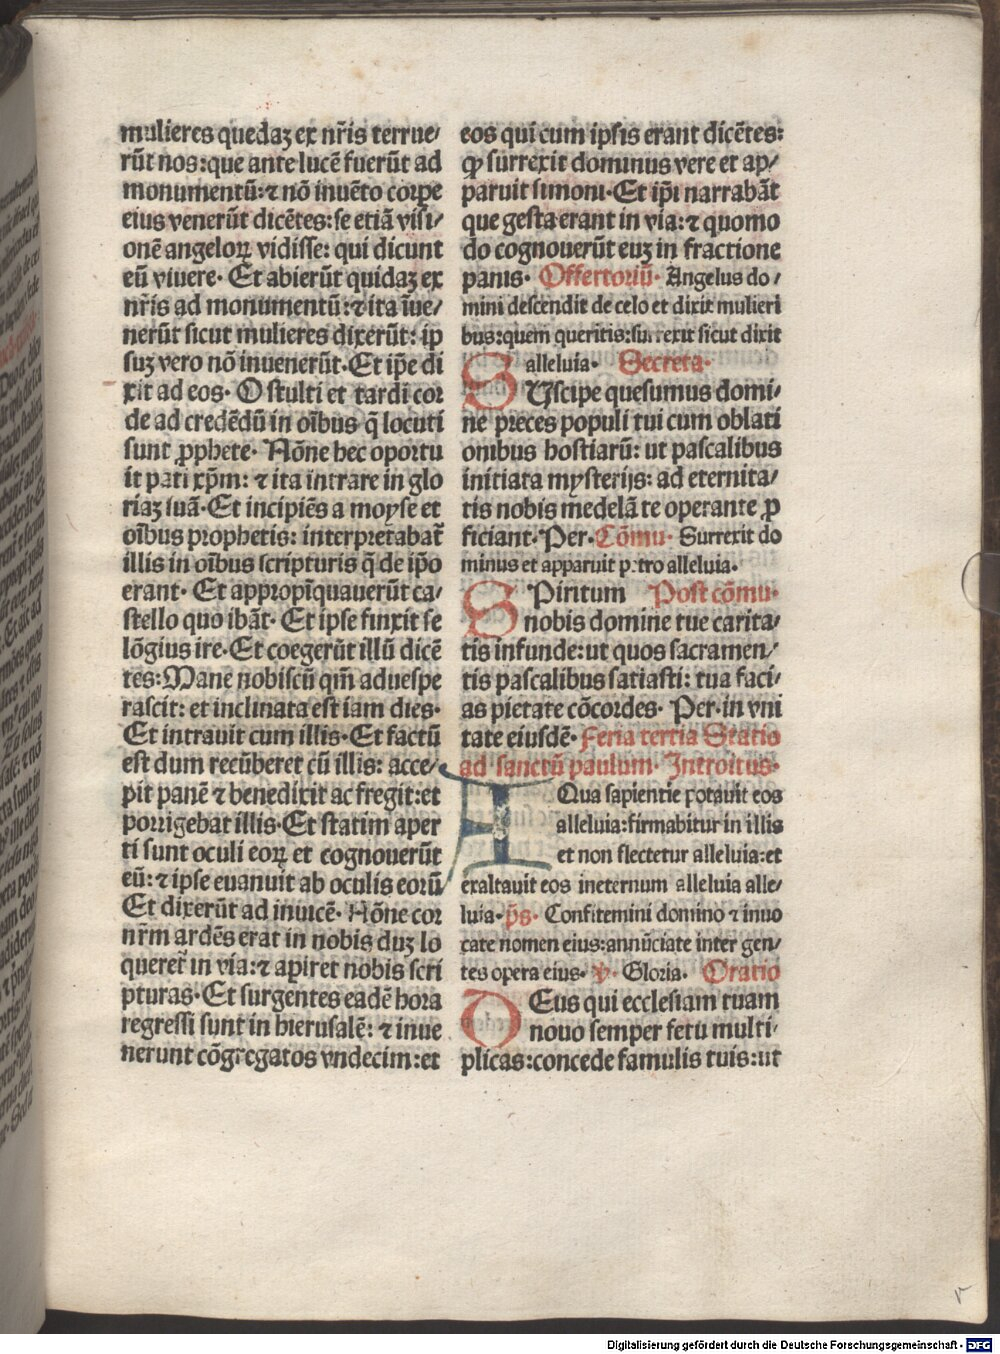 mulieres quedaʒ ex nr̄is terrue/
rūt nos:que ante lucē fuerūt ad
monumentū:⁊ nō inuēto corpe
eius venerūt dicētes:se etiā visi/
onē angeloꝝ vidisse: qui dicunt
eū viuere· Et abierūt quidaʒ ex
nr̄is ad monumentū:⁊ ita īue/
nerūt sicut mulieres dixerūt: ip
suʒ vero nō inuenerūt·Et ip̄e di
xit ad eos· O stulti et tardi cor
de ad credēdū in oībus q̄ locuti
sunt ꝓphete· Nōne hec oportu
it pati xp̄m: ⁊ ita intrare in glo
riaʒ suā·Et incipiēs a moyse et
oībus prophetis: interpretabat᷑
illis in oībus scripturis q̄ de ip̄o
erant· Et appropīquauerūt ca/
stello quo ibāt· Et ipse finxit se
lōgius ire·Et coegerūt illū dicē
tes:Mane nobiscū qm̄ aduespe
rascit: et inclinata est iam dies·
Et intrauit cum illis·Et factū
est dum recūberet cū illis: acce/
pit panē ⁊ benedixit ac fregit:et
porrigebat illis·Et statim aper
ti sunt oculi eoꝝ et cognouerūt
eū: ⁊ ipse euanuit ab oculis eorū
Et dixerūt ad inuicē· Nōne cor
nr̄m ardēs erat in nobis duʒ lo
queret᷑ in via:⁊ apiret nobis scri
pturas·Et surgentes eadē hora
regressi sunt in hierusalē: ⁊ inue
nerunt cōgregatos vndecim:et
eos qui cum ipsis erant dicētes:
ꝙ surrexit dominus vere et ap/
paruit simoni·Et ip̄i narrabāt
que gesta erant in via:⁊ quomo
do cognouerūt euʒ in fractione
panis· Offertoriū· Angelus do/
mini descendit de celo et dixit mulieri
bus:quem queritis:surrexit sicut dixit
alleluia· Secreta·
SUscipe quesumus domi/
ne preces populi tui cum oblati
onibus hostiarū: ut pascalibus
initiata mysterijs: ad eternita/
tis nobis medelā te operante ꝓ
ficiant·Per·Cōmu· Surrexit do
minus et apparuit petro alleluia·
SPiritum Post cōmu·
nobis domine tue carita/
tis infunde:ut quos sacramen/
tis pascalibus satiasti: tua faci/
as pietate cōcordes· Per·in vni
tate eiusdē·Feria tertia Statio
ad sanctū paulum· Introitus·
AQua sapientie potauit eos
alleluia:firmabitur in illis
et non flectetur alleluia:et
exaltauit eos ineternum alleluia alle/
luia·p̄s· Confitemini domino ⁊ inuo
cate nomen eius:annūciate inter gen/
tes opera eius· ℣· Gloria· Oratio
DEus qui ecclesiam tuam
nouo semper fetu multi/
plicas:concede famulis tuis:ut
Digitalisierung gefördert durch die Deutsche Forschungsgemeinschaft · DFG